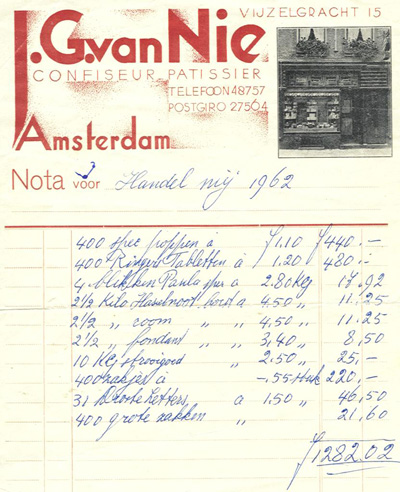 VIJZELGRACHT 15
J.G.van Nie
CONFISEUR PATISSIER
TELEFOON 48757
POSTGIRO 27564
Amsterdam
Nota voor Handel mij 1962
400 spec poppen á ƒ1.10 ƒ440.-
400 Ringers Tabletten á " 1.20 480.-
4 blikken Paula spec á 2.80 kg 17.92
2½ Kilo Hazelnoot á 4.50 " 11.25
2½ " " " 4,50 " 11.25
2½ " fondant " " 3,40 " 8,50
10 Kg strooigoed " 2,50 " 25,-
400 zakjes á -.55 220,-
31 Droste Letters á 1.50 " 46,50
400 grote zakken " 21,60
ƒ1282.02